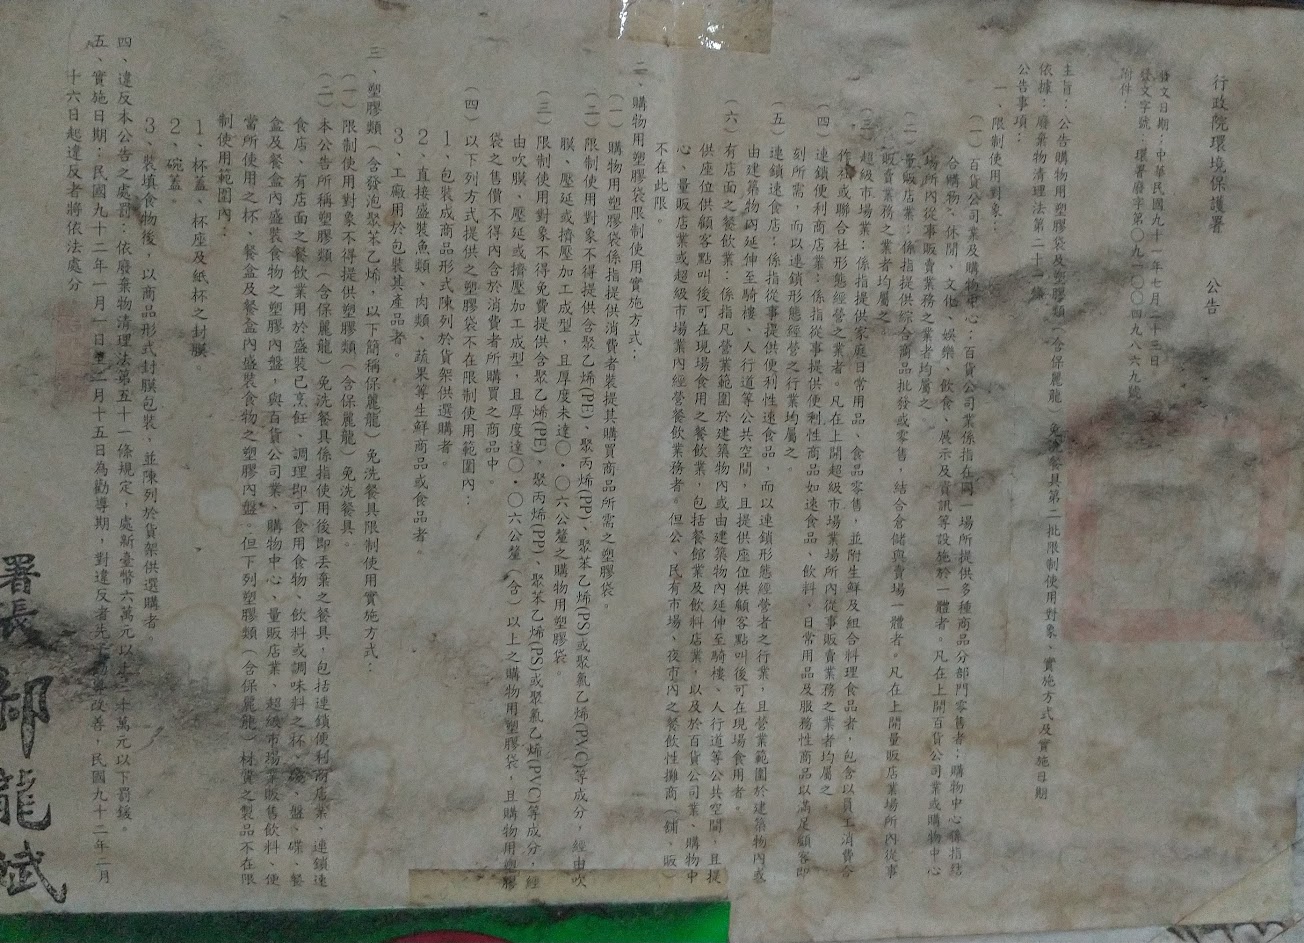 行政院環境保護署 公告
發文日期：中華民國九十一年七月二十三日
發文字號：環署廢字第〇九一〇〇四九八六九號
附件：
主旨：公告購物用塑膠袋及塑膠類（含保麗龍）免洗餐具第二批限制使用對象、實施方式及實施日期
依據：廢棄物清理法第二十一條
公告事項：
一、限制使用對象：
（一）百貨公司業及購物中心：百貨公司業係指在同一場所提供多種商品分部門零售者；購物中心係指結
合購物、休閒、文化、娛樂、飲食、展示及資訊等設施於一體者。凡在上開百貨公司業或購物中心
場所內從事販賣業務之業者均屬之。
（二）量販店業：係指提供綜合商品批發或零售，結合倉儲與賣場一體者。凡在上開量販店業場所內從事
販賣業務之業者均屬之。
（三）超級市場業：係指提供家庭日常用品、食品零售，並附生鮮及組合料理食品者，包含以員工消費合
作社或聯合社形態經營之業者。凡在上開超級市場業場所內從事販賣業務之業者均屬之。
（四）連鎖便利商店業：係指從事提供便利性商品如速食品、飲料、日常用品及服務性商品以滿足顧客即
刻所需，而以連鎖形態經營之行業均屬之。
（五）連鎖速食店：係指從事提供便利性速食品，而以連鎖形態經營者之行業，且營業範圍於建築物內或
由建築物內延伸至騎樓、人行道等公共空間，且提供座位供顧客點叫後可在現場食用者。
（六）有店面之餐飲業：係指凡營業範圍於建築物內或由建築物內延伸至騎樓、人行道等公共空間，且提
供座位供顧客點叫後可在現場食用之餐飲業，包括餐館業及飲料店業，以及於百貨公司業、購物中
心、量販店業或超級市場業內經營餐飲業務者。但公、民有市場、夜市內之餐飲性攤商（鋪、販）
不在此限。
二、購物用塑膠袋限制使用實施方式：
（一）購物用塑膠袋係指提供消費者裝提其購買商品所需之塑膠袋。
（二）限制使用對象不得提供含聚乙烯(PE)、聚丙烯(PP)、聚苯乙烯(PS)或聚氯乙烯(PVC)等成分，經由吹
膜、壓延或擠壓加工成型，且厚度未達〇．〇六公釐之購物用塑膠袋。
（三）限制使用對象不得免費提供含聚乙烯(PE)、聚丙烯(PP)、聚苯乙烯(PS)或聚氯乙烯(PVC)等成分，經
由吹膜、壓延或擠壓加工成型，且厚度達〇．〇六公釐（含）以上之購物用塑膠袋，且購物用塑膠
袋之售價不得內含於消費者所購買之商品中。
（四）以下列方式提供之塑膠袋不在限制使用範圍內：
1、包裝成商品形式陳列於貨架供選購者。
2、直接盛裝魚類、肉類、蔬果等生鮮商品或食品者。
3、工廠用於包裝其產品者。
三、塑膠類（含發泡聚苯乙烯，以下簡稱保麗龍）免洗餐具限制使用實施方式：
（一）限制使用對象不得提供塑膠類（含保麗龍）免洗餐具。
（二）本公告所稱塑膠類（含保麗龍）免洗餐具係指使用後即丟棄之餐具，包括連鎖便利商店業、連鎖速
食店、有店面之餐飲業用於盛裝已烹飪、調理即可食用食物、飲料或調味料之杯、碗、盤、碟、餐
盒及餐盒內盛裝食物之塑膠內盤，與百貨公司業、購物中心、量販店業、超級市場業販售飲料、便
當所使用之杯、餐盒及餐盒內盛裝食物之塑膠內盤。但下列塑膠類（含保麗龍）材質之製品不在限
制使用範圍內：
1、杯蓋、杯座及紙杯之封膜。
2、碗蓋。
3、裝填食物後，以商品形式封膜包裝、並陳列於貨架供選購者。
四、違反本公告之處罰：依廢棄物清理法第五十一條規定，處新臺幣六萬元以上三十萬元以下罰鍰。
五、實施日期：民國九十二年一月一日至二月十五日為勸導期，對違反者先予勸導改善，民國九十二年二月
十六日起違反者將依法處分
署長 郝龍斌